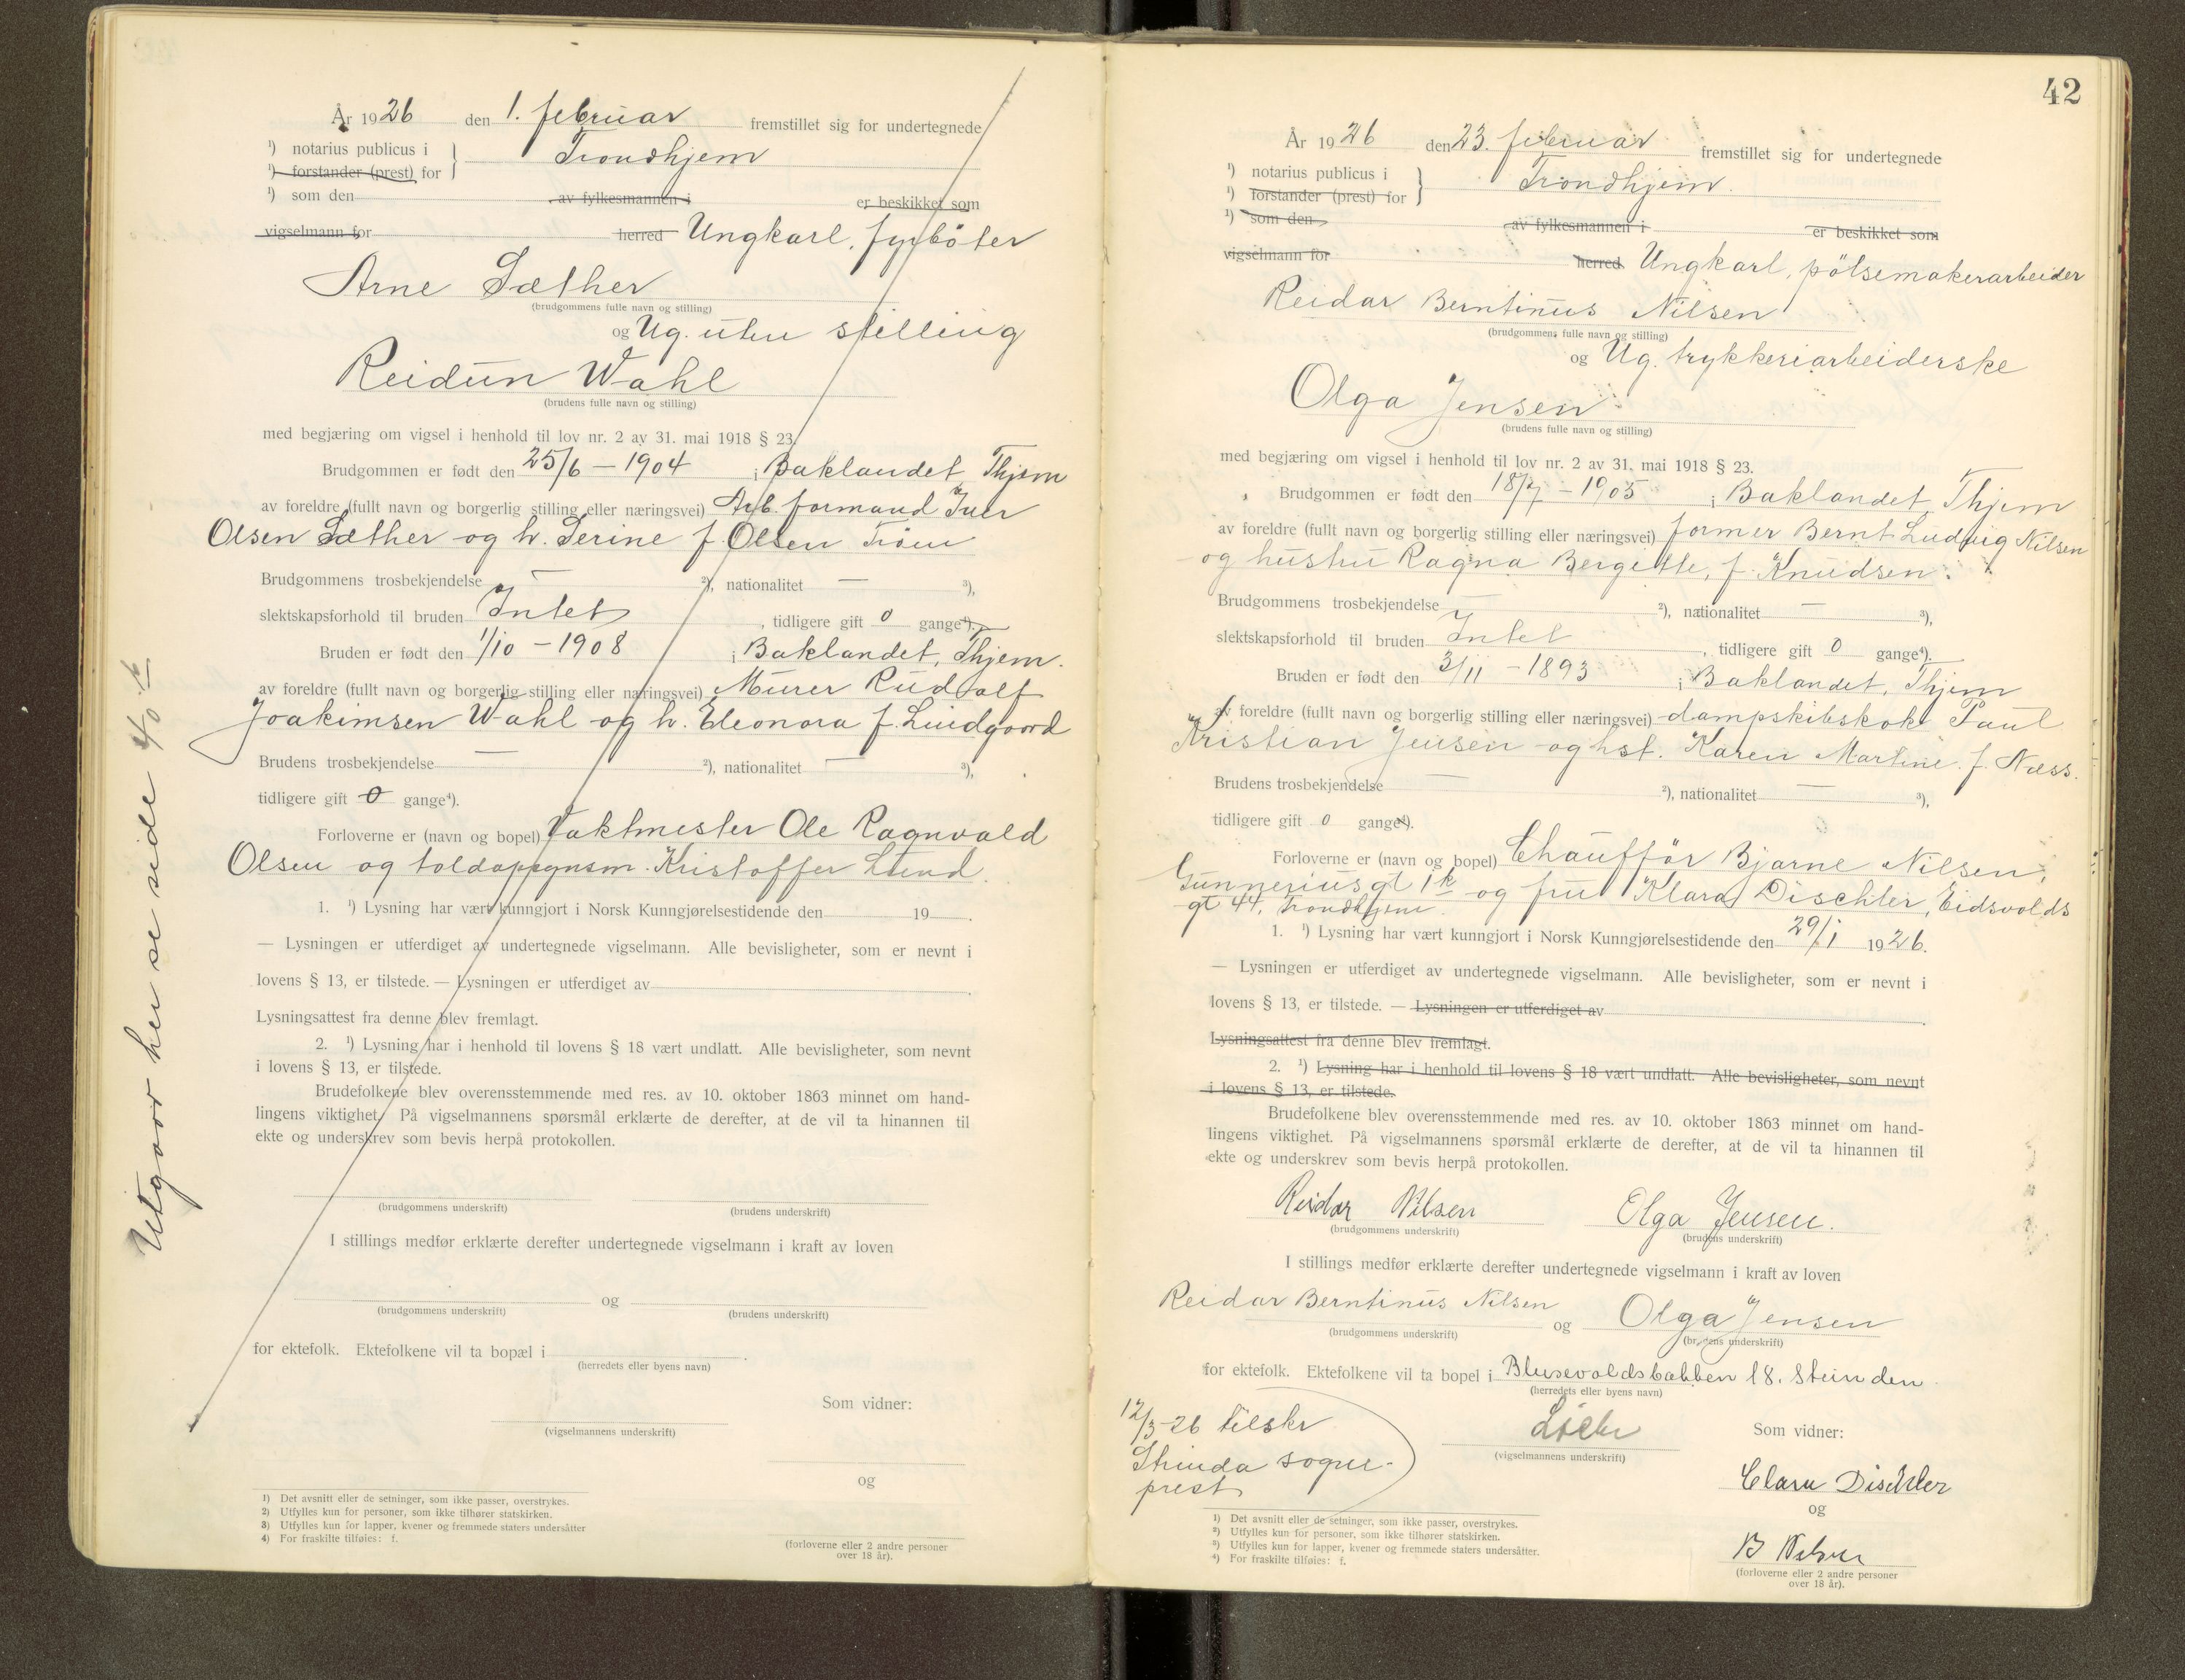 År 1926 den 1. februar fremstillet sig for undertegnede
¹) notarius publicus i
Trondhjem
¹) forstander (prest) for
¹) som den av fylkesmannen i er beskikket som
vigselmann for herred Ungkarl, fyrböter
Arne Sæther
(brudgommens fulle navn og stilling)
og Ug. uten stilling
Reidun Wahl
(brudens fulle navn og stilling)
med begjæring om vigsel i henhold til lov nr. 2 av 31. mai 1918 § 23.
Brudgommen er født den 25/6 - 1904 i Baklandet, Thjem
av foreldre (fullt navn og borgerlig stilling eller næringsvei) Arb. formand Iver
Olsen Sæther og h. Serine f. Olsen
Brudgommens trosbekjendelse — ²), nationalitet — ³),
slektskapsforhold til bruden Intet, tidligere gift 0 gange⁴).
Bruden er født den 1/10 - 1908 i Baklandet, Thjem.
av foreldre (fullt navn og borgerlig stilling eller næringsvei) Murer Rudolf
Joakimsen Wahl og h. Eleonora f. Lindgaard
Brudens trosbekjendelse — ²), nationalitet — ³),
tidligere gift 0 gange⁴).
Forloverne er (navn og bopel) Vaktmester Ole Ragnvald
Olsen og toldopsynsm. Kristoffer Lund.
1. ¹) Lysning har vært kunngjort i Norsk Kunngjørelsestidende den 19 .
— Lysningen er utferdiget av undertegnede vigselmann. Alle bevisligheter, som er nevnt i
lovens § 13, er tilstede. — Lysningen er utferdiget av .
Lysningsattest fra denne blev fremlagt.
2. ¹) Lysning har i henhold til lovens § 18 vært undlatt. Alle bevisligheter, som nevnt
i lovens § 13, er tilstede.
Brudefolkene blev overensstemmende med res. av 10. oktober 1863 minnet om hand-
lingens viktighet. På vigselmannens spørsmål erklærte de derefter, at de vil ta hinannen til
ekte og underskrev som bevis herpå protokollen.
(brudgommens underskrift) (brudens underskrift)
I stillings medfør erklærte derefter undertegnede vigselmann i kraft av loven
og
(brudgommens underskrift) (brudens underskrift)
for ektefolk. Ektefolkene vil ta bopæl i .
(herredets eller byens navn)
Som vidner:
(vigselmannens underskrift)
og
(forloverne eller 2 andre personer
over 18 år).
1) Det avsnitt eller de setninger, som ikke passer, overstrykes.
2) Utfylles kun for personer, som ikke tilhører statskirken.
3) Utfylles kun for lapper, kvener og fremmede staters undersåtter
4) For fraskilte tilføies: f.
Utgaar her se side 40
42
År 1926 den 23. februar fremstillet sig for undertegnede
¹) notarius publicus i
Trondhjem.
¹) forstander (prest) for
¹) som den av fylkesmannen i er beskikket som
vigselmann for herred Ungkarl, pölsemakerarbeider
Reidar Berntinus Nilsen
(brudgommens fulle navn og stilling)
og Ug. trykkeriarbeiderske
Olga Jensen
(brudens fulle navn og stilling)
med begjæring om vigsel i henhold til lov nr. 2 av 31. mai 1918 § 23.
Brudgommen er født den 18/7 - 1905 i Baklandet, Thjem
av foreldre (fullt navn og borgerlig stilling eller næringsvei) former Bernt Ludvig Nilsen
og hustru Ragna Bergitte, f. Knudsen.
Brudgommens trosbekjendelse — ²), nationalitet — ³),
slektskapsforhold til bruden Intet, tidligere gift 0 gange⁴).
Bruden er født den 3/11 - 1893 i Baklandet, Thjem
av foreldre (fullt navn og borgerlig stilling eller næringsvei) dampskibskok Paul
Kristian Jensen og hst. Karen Martine f. Næss.
Brudens trosbekjendelse — ²), nationalitet — ³),
tidligere gift 0 gange⁴).
Forloverne er (navn og bopel) Chauffør Bjarne Nilsen,
Gunnerius gt 1 og fru Klara Dischler, Eidsvolds
gt 44, Trondhjem.
1. ¹) Lysning har vært kunngjort i Norsk Kunngjørelsestidende den 29/1 1926.
— Lysningen er utferdiget av undertegnede vigselmann. Alle bevisligheter, som er nevnt i
lovens § 13, er tilstede. — Lysningen er utferdiget av .
Lysningsattest fra denne blev fremlagt.
2. ¹) Lysning har i henhold til lovens § 18 vært undlatt. Alle bevisligheter, som nevnt
i lovens § 13, er tilstede.
Brudefolkene blev overensstemmende med res. av 10. oktober 1863 minnet om hand-
lingens viktighet. På vigselmannens spørsmål erklærte de derefter, at de vil ta hinannen til
ekte og underskrev som bevis herpå protokollen.
Reidar Nilsen Olga Jensen.
(brudgommens underskrift) (brudens underskrift)
I stillings medfør erklærte derefter undertegnede vigselmann i kraft av loven
Reidar Berntinus Nilsen og Olga Jensen
(brudgommens underskrift) (brudens underskrift)
for ektefolk. Ektefolkene vil ta bopel i Blusevoldsbakken 18. Strinden
(herredets eller byens navn)
12/3-26 tilskr
Strinda sogne-
prest
Som vidner:
(vigselmannens underskrift)
Clara Dischler
og
B Nilsen
(forloverne eller 2 andre personer
over 18 år).
¹) Det avsnitt eller de setninger, som ikke passer, overstrykes.
²) Utfylles kun for personer, som ikke tilhører statskirken.
³) Utfylles kun for lapper, kvener og fremmede staters undersåtter.
⁴) For fraskilte tilføies: f.